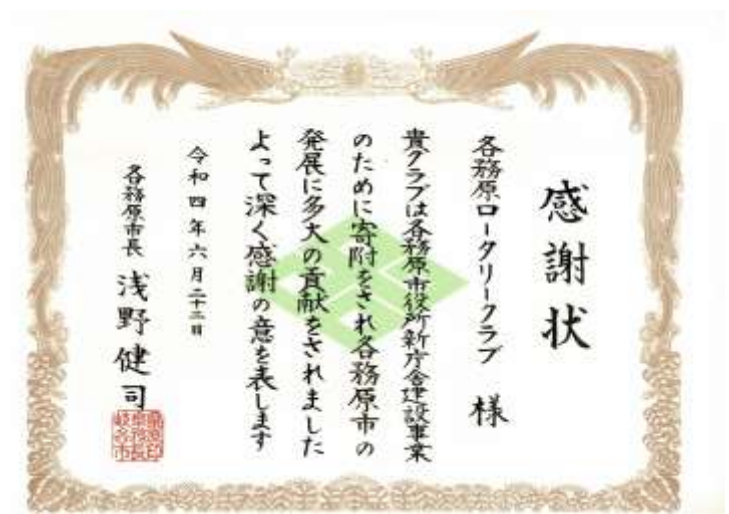 感謝状
各務原ロータリークラブ 様
貴クラブは各務原市役所新庁舎建設事業
のために寄附をされ各務原市の
発展に多大の貢献をされました
よって深く感謝の意を表します
令和四年六月二十三日
各務原市長 浅野健司